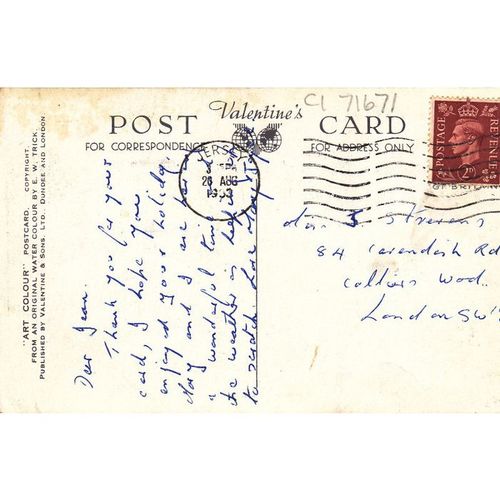 Valentine's
C1 71671
POST CARD
FOR CORRESPONDENCE
FOR ADDRESS ONLY
JERSEY
26 AUG
1953
POSTAGE
REVENUE
2D
"ART COLOUR" POSTCARD. COPYRIGHT.
FROM AN ORIGINAL WATER COLOUR BY E. W. TRICK.
PUBLISHED BY VALENTINE & SONS. LTD. DUNDEE AND LONDON.
Dear Jean.
Thank you for your
card, I hope you
enjoyed your holiday
Mary and I are having
a wonderful time
the weather is
to scratch. Love
Stevens
84 Cavendish Rd
Colliers Wood.
London SW